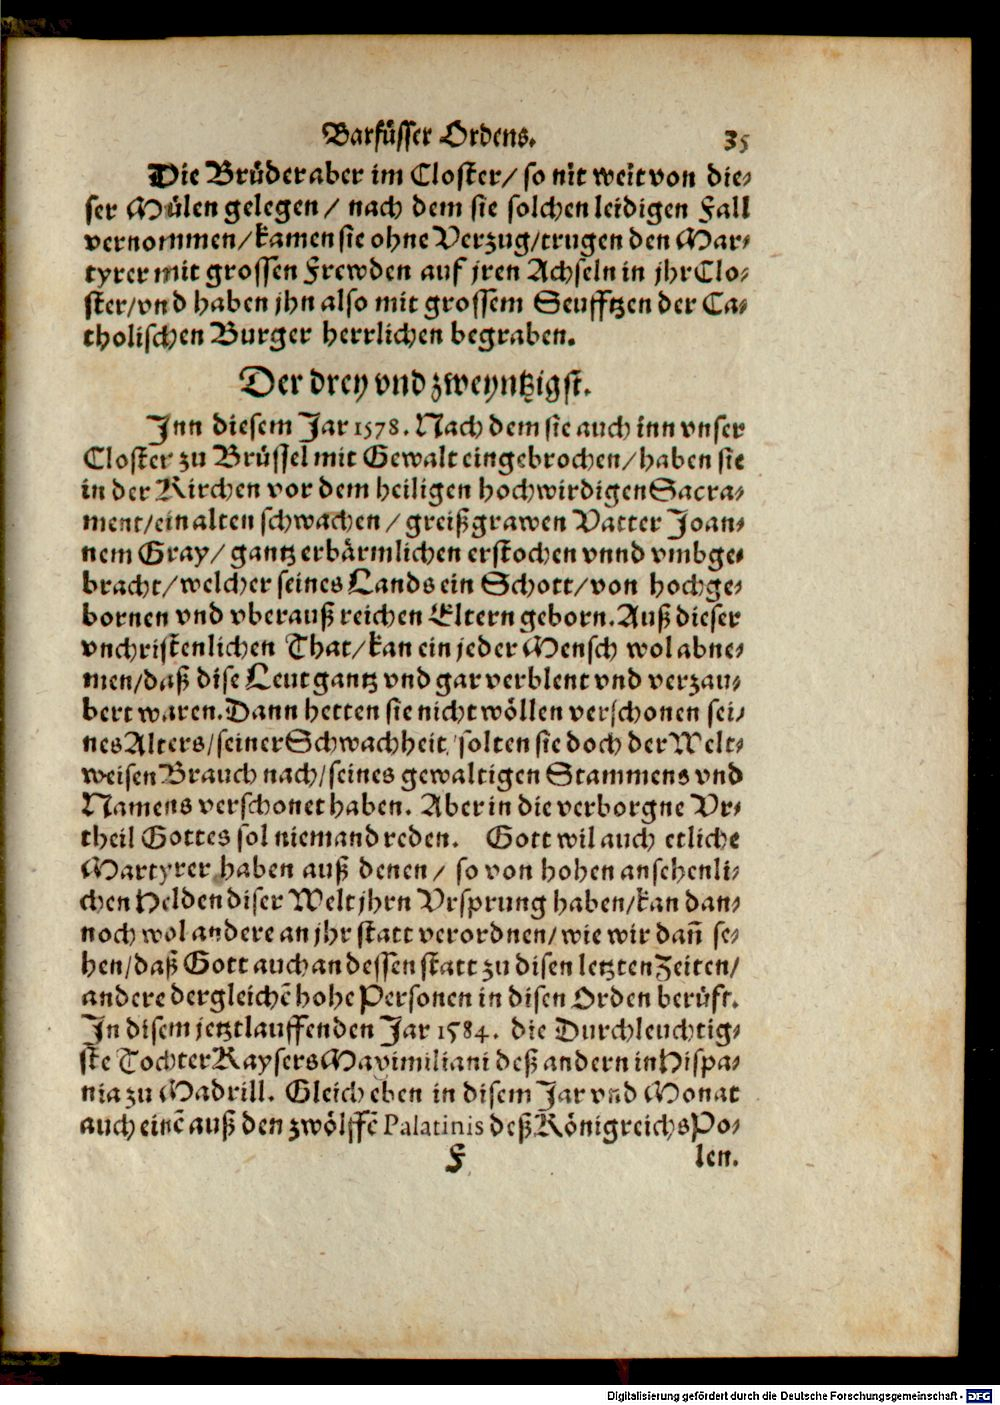 Barfüsser Ordens. 35
Die Brüder aber im Closter/ so nit weit von die-
ser Mülen gelegen/ nach dem sie solchen leidigen Fall
vernommen/ kamen sie ohne Verzug/ trugen den Mar-
tyrer mit grossen Frewden auf jren Achseln in jhr Clo-
ster/ vnd haben jhn also mit grossem Seufftzen der Ca-
tholischen Burger herrlichen begraben.
Der drey vnd zweyntzigst.
Inn diesem Jar 1578. Nach dem sie auch inn vnser
Closter zu Brüssel mit Gewalt eingebrochen/ haben sie
in der Kirchen vor dem heiligen hochwirdigen Sacra-
ment/ ein alten schwachen/ greißgrawen Vatter Joan-
nem Gray/ gantz erbärmlichen erstochen vnnd vmbge-
bracht/ welcher seines Lands ein Schott/ von hochge-
bornen vnd vberauß reichen Eltern geborn. Auß dieser
vnchristenlichen That/ kan ein jeder Mensch wol abne-
men/ daß dise Leut gantz vnd gar verblent vnd verzau-
bert waren. Dann hetten sie nicht wöllen verschonen sei-
nes Alters/ seiner Schwachheit, solten sie doch der Welt-
weisen Brauch nach/ seines gewaltigen Stammens vnd
Namens verschonet haben. Aber in die verborgne Vr-
theil Gottes sol niemand reden. Gott wil auch etliche
Martyrer haben auß denen/ so von hohen ansehenli-
chen Helden diser Welt jhrn Vrsprung haben/ kan dan-
noch wol andere an jhr statt verordnen/ wie wir dañ se-
hen/ daß Gott auch an dessen statt zu disen letzten Zeiten/
andere dergleichẽ hohe Personen in disen Orden berüft.
In disem jetztlauffenden Jar 1584. die Durchleuchtig-
ste Tochter Kaysers Maximiliani deß andern in Hispa-
nia zu Madrill. Gleich eben in disem Jar vnd Monat
auch einẽ auß den zwölffẽ Palatinis deß Königreichs Po-
F len.
Digitalisierung gefördert durch die Deutsche Forschungsgemeinschaft - DFG